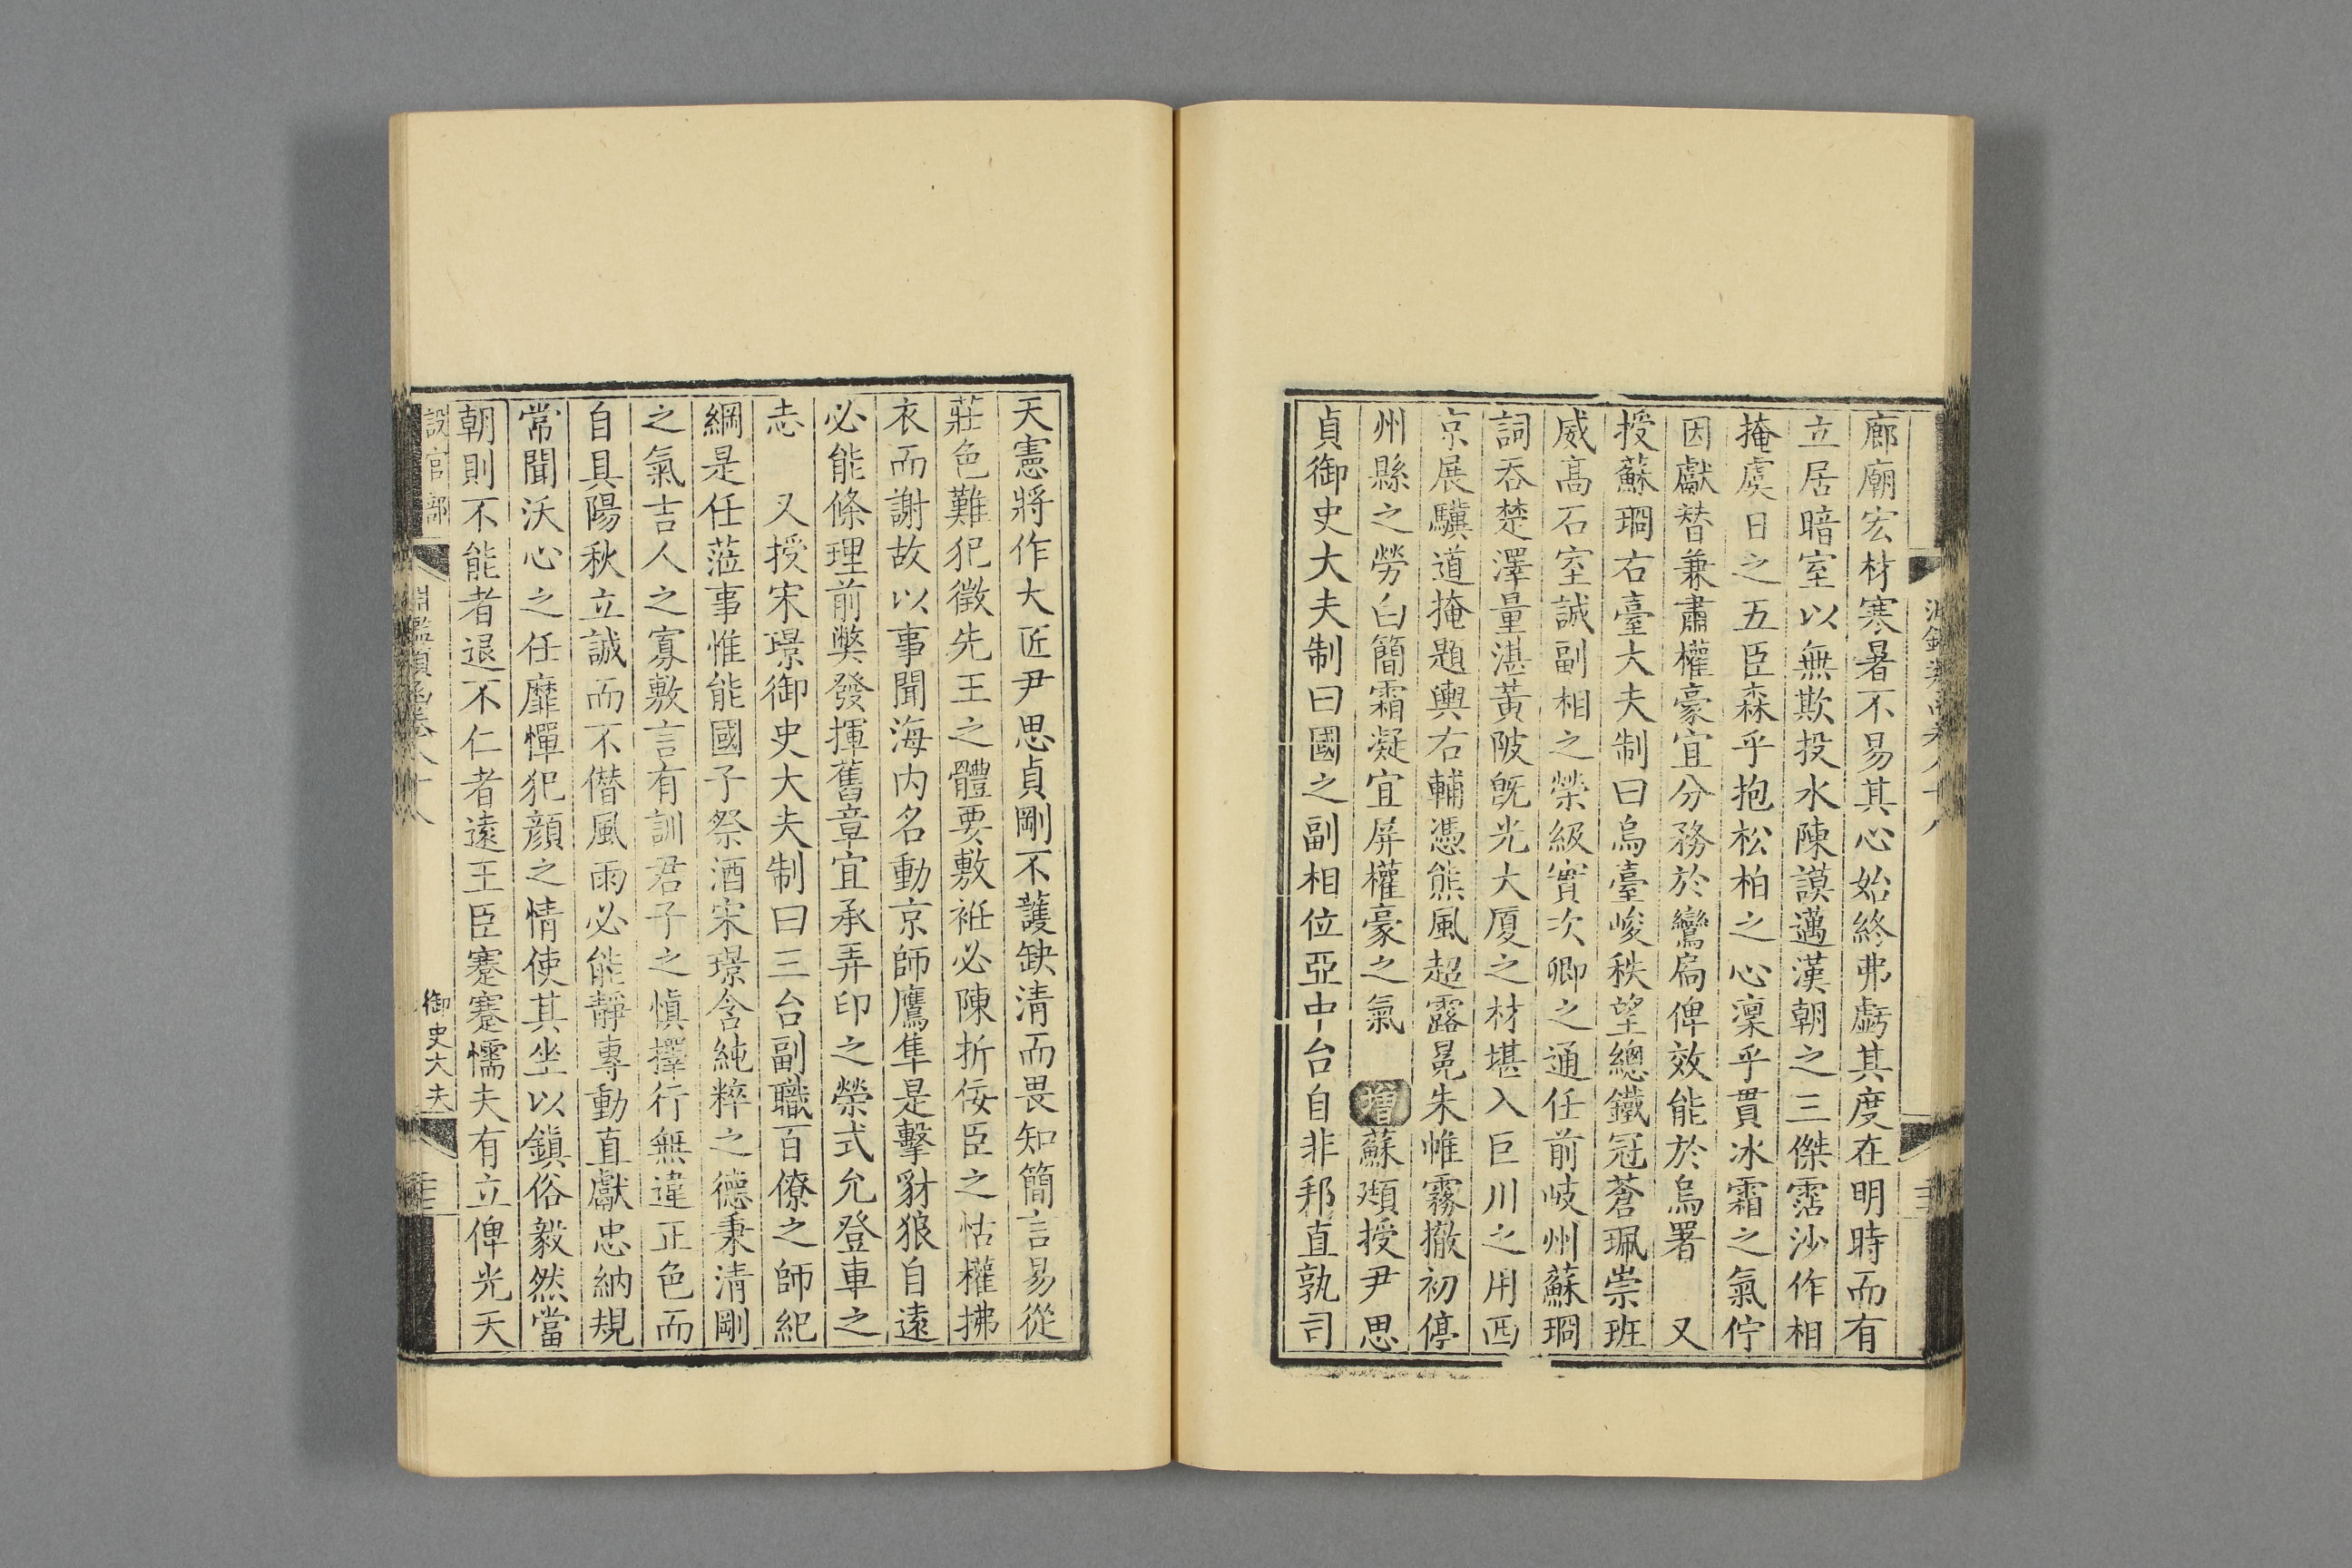 廊廟宏材寒暑不易其心始終弗虧其度在明時而有
立居暗室以無欺投水陳謨邁漢朝之三傑霑沙作相
掩虞日之五臣森乎抱松柏之心凜乎貫冰霜之氣佇
因獻替兼肅權豪宜分務於鸞扃俾效能於烏署　又
授蘇珦右臺大夫制曰烏臺峻秩望總鐵冠蒼珮崇班
威高石室誠副相之榮級實次卿之通任前岐州蘇珦
詞吞楚澤量湛黃陂旣光大厦之材堪入巨川之用西
京展驥道掩題輿右輔憑熊風超露冕朱帷霧撤初停
州縣之勞白簡霜凝宜屏權豪之氣　增蘇頲授尹思
貞御史大夫制曰國之副相位亞中台自非邦直孰司
天憲將作大匠尹思貞剛不護缺清而畏知簡言易從
莊色難犯徵先王之體要敷衽必陳折佞臣之怙權拂
衣而謝故以事聞海内名動京師鷹隼是擊豺狼自遠
必能條理前弊發揮舊章宜承弄印之榮式允登車之
志　又授宋璟御史大夫制曰三台副職百僚之師紀
綱是任蒞事惟能國子祭酒宋璟含純粹之德秉清剛
之氣吉人之寡敷言有訓君子之慎擇行無違正色而
自具陽秋立誠而不僭風雨必能靜專動直獻忠納規
常聞沃心之任靡憚犯顔之情使其坐以鎮俗毅然當
朝則不能者退不仁者遠王臣蹇蹇懦夫有立俾光天
設官部　淵鑑類函卷八十八　御史大夫